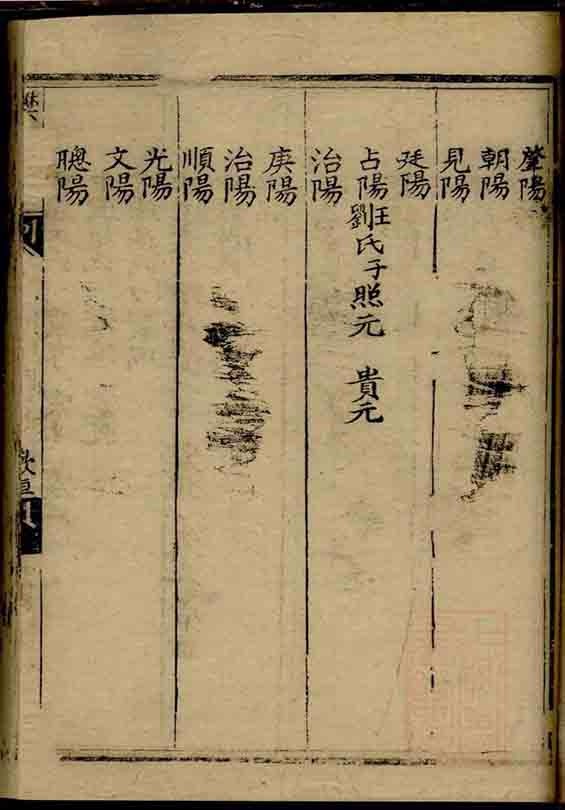 肇陽
朝陽
見陽
廷陽
占陽 王劉氏子熙元 貴元
治陽
庚陽
治陽
順陽
光陽
文陽
聰陽